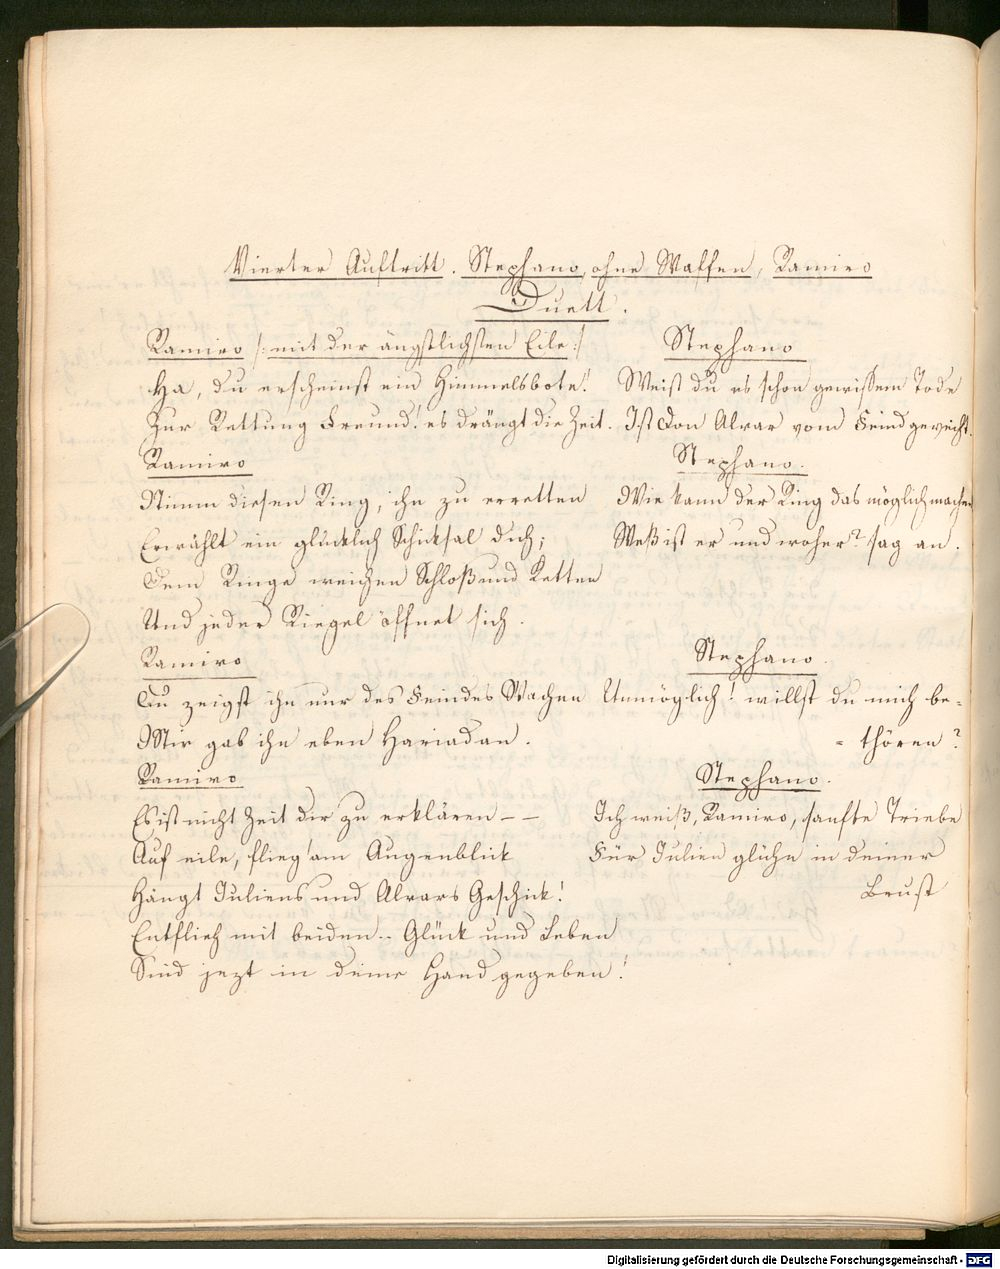 Vierter Auftritt. Stephano, ohne Waffen, Ramiro
Duett.
Ramiro /: mit der ängstlichsten Eile :/
Ha, du erscheinst ein Himmelsbote!
Zur Rettung Freund! es drängt die Zeit.
Stephano
Weist du es schon gewissem Tode
Ist Don Alvar vom Feind geweiht.
Ramiro
Nimm diesen Ring, ihn zu erretten
Erwählt ein glücklich Schicksal dich;
Dem Ringe weichen Schloß und Ketten
Und jeder Riegel öffnet sich.
Stephano.
Wie kann der Ring das möglich machen
Weß ist er und woher? sag an.
Ramiro
Du zeigst ihn nur des Feindes Wachen
Mir gab ihn eben Hariadan.
Stephano.
Unmöglich! willst du mich be-
- thören?
Ramiro
Es ist nicht Zeit dir zu erklären - -
Auf eile, flieg! am Augenblick
Hängt Juliens und Alvars Geschick!
Entflieh mit beiden! - Glück und Leben
Sind jezt in deine Hand gegeben!
Stephano.
Ich weiß, Ramiro, sanfte Triebe
Für Julien glühn in deiner
Brust
Digitalisierung gefördert durch die Deutsche Forschungsgemeinschaft - DFG